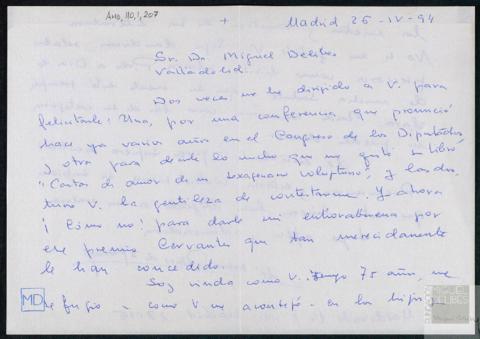 AMD, 110, 1, 207
+ Madrid 25-IV-94
Sr. Dn. Miguel Delibes
Valladolid.
Dos veces me he dirigido a V. para
felicitarle: Una, por una conferencia que pronunció
hace ya varios años en el Congreso de los Diputados,
y otra para decirle lo mucho que me gustó su libro
"Cartas de amor de un sexagenario voluptuoso", y las dos
tuvo V. la gentileza de contestarme. Y ahora
¡Cómo no! para darle mi enhorabuena por
ese premio Cervantes que tan merecidamente
le han concedido.
Soy viuda como V. Tengo 75 años, me
refugio - como V. me aconsejó - en los hijos,
MD
MIGUEL
DELIBES